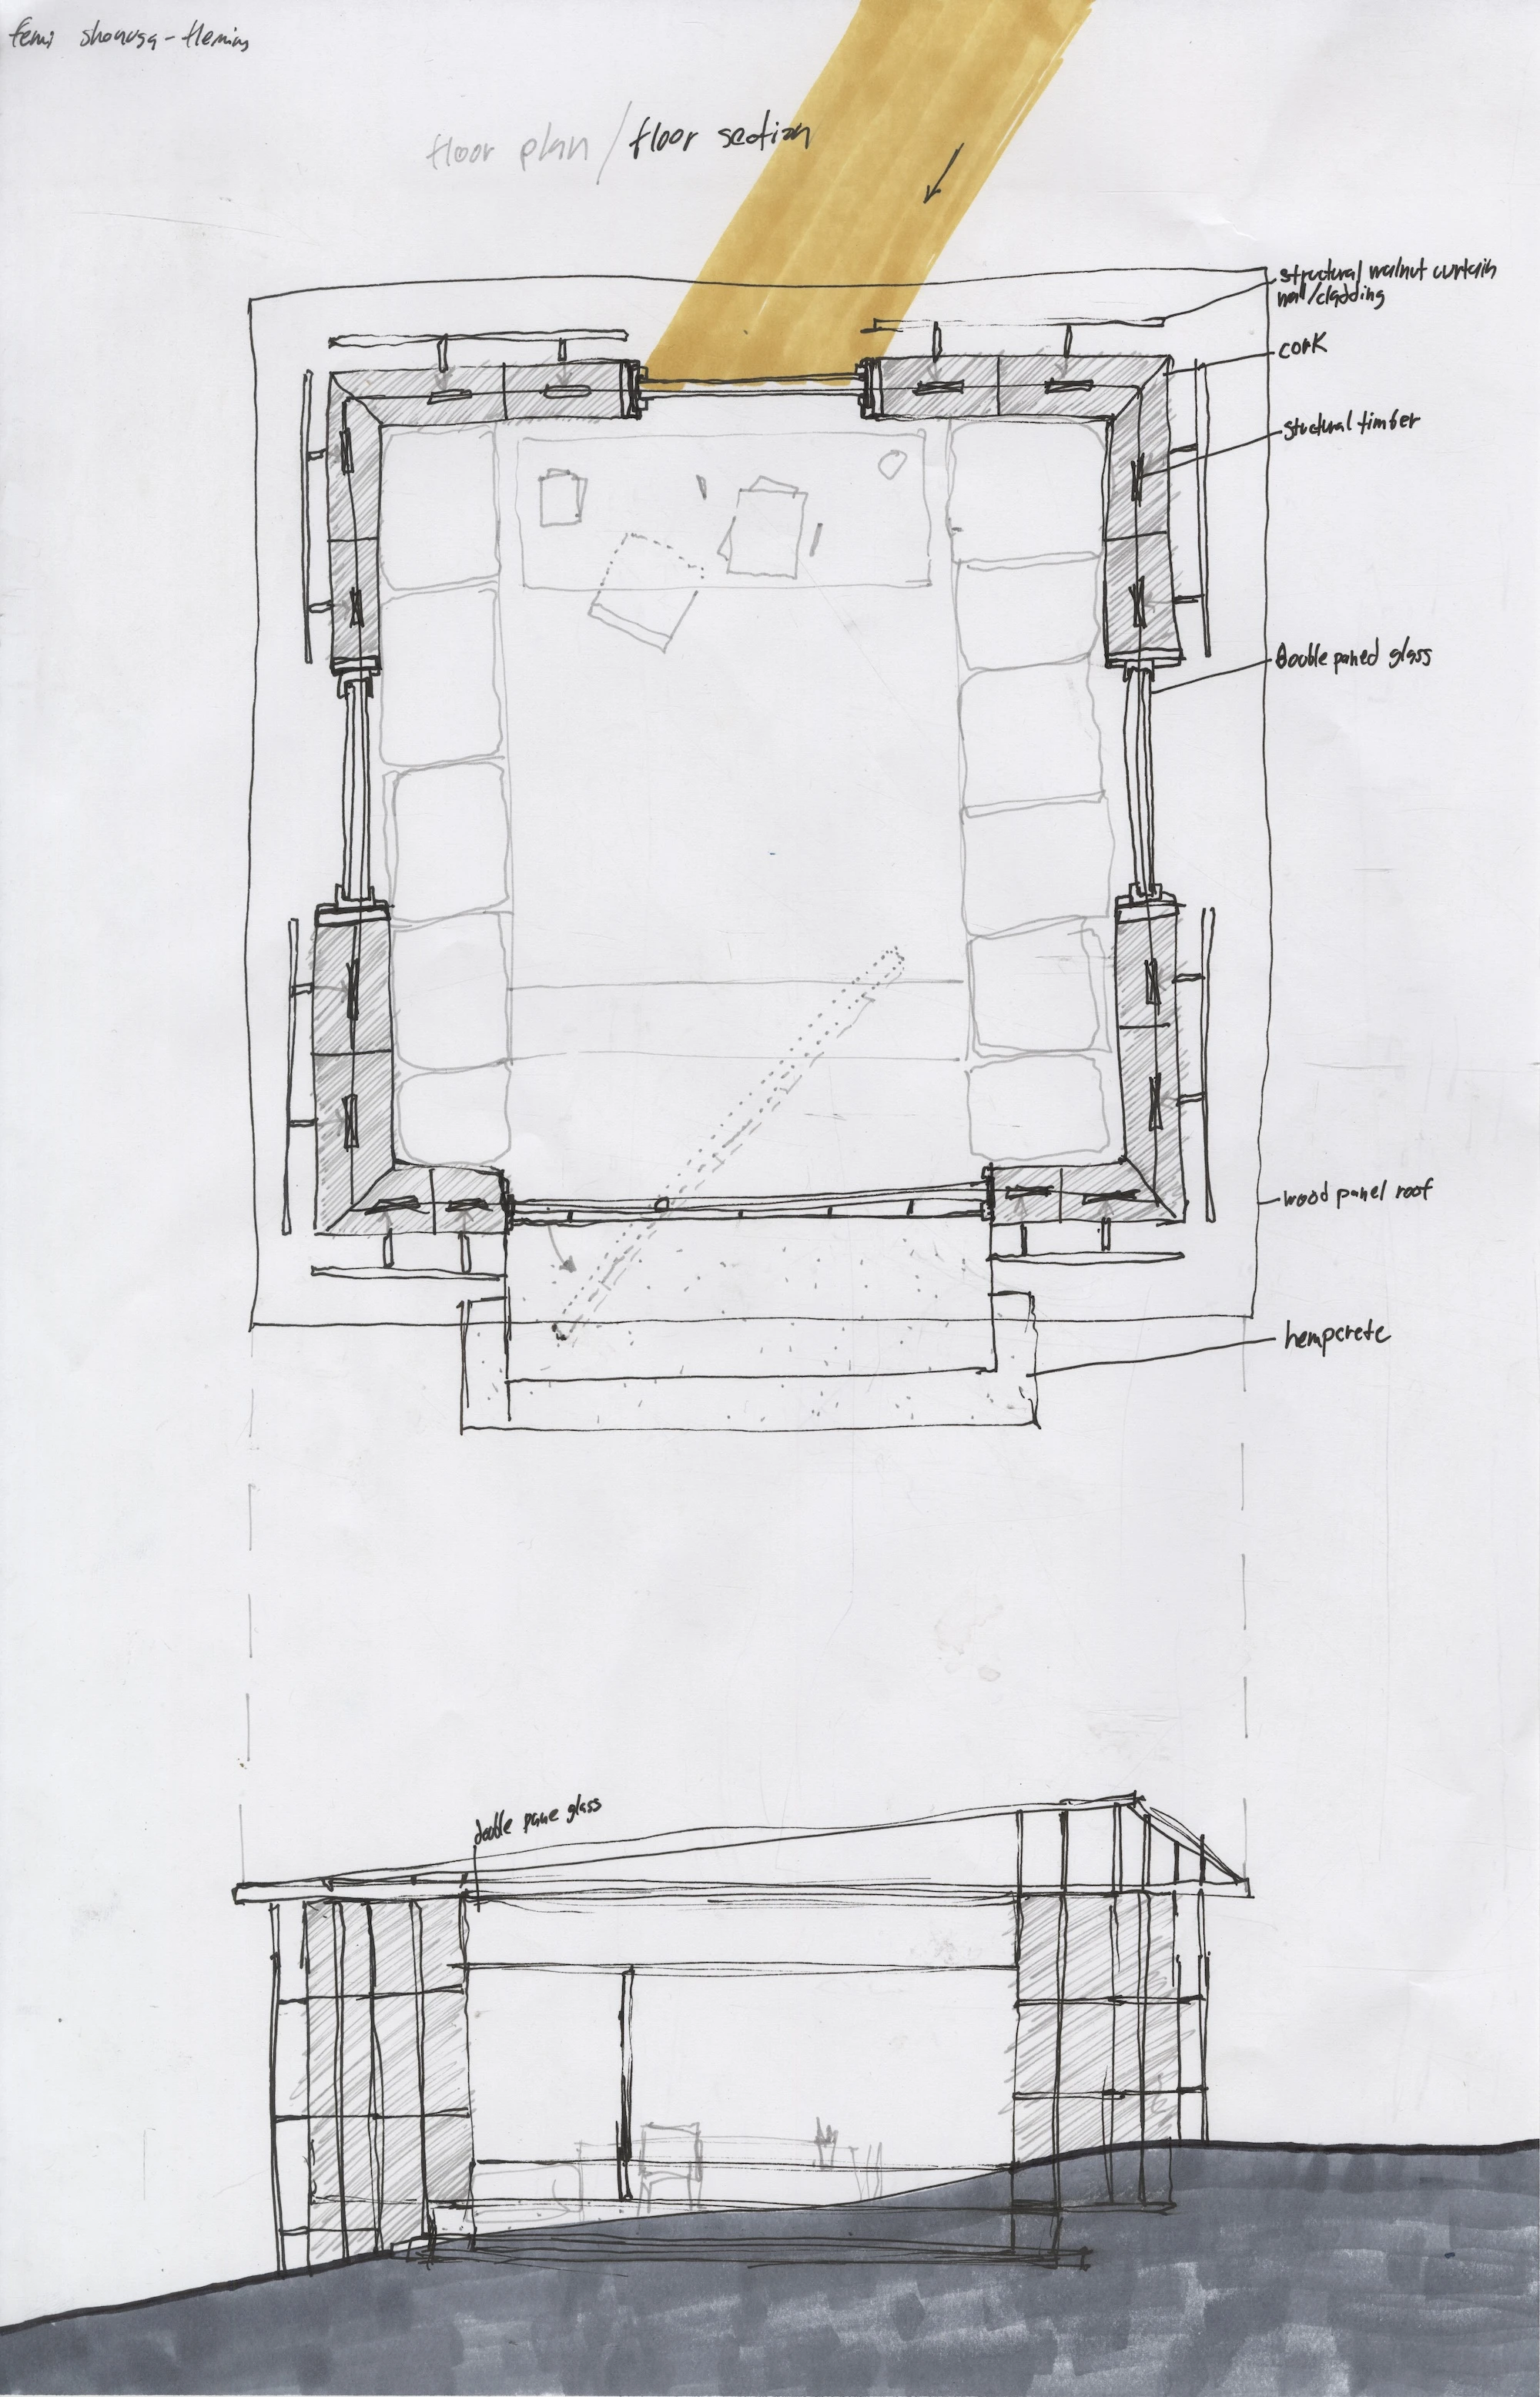 femi shonuga-fleming
floor plan / floor section
structural walnut curtain
wall/cladding
cork
stuctural timber
Double paned glass
wood panel roof
hempcrete
double pane glass